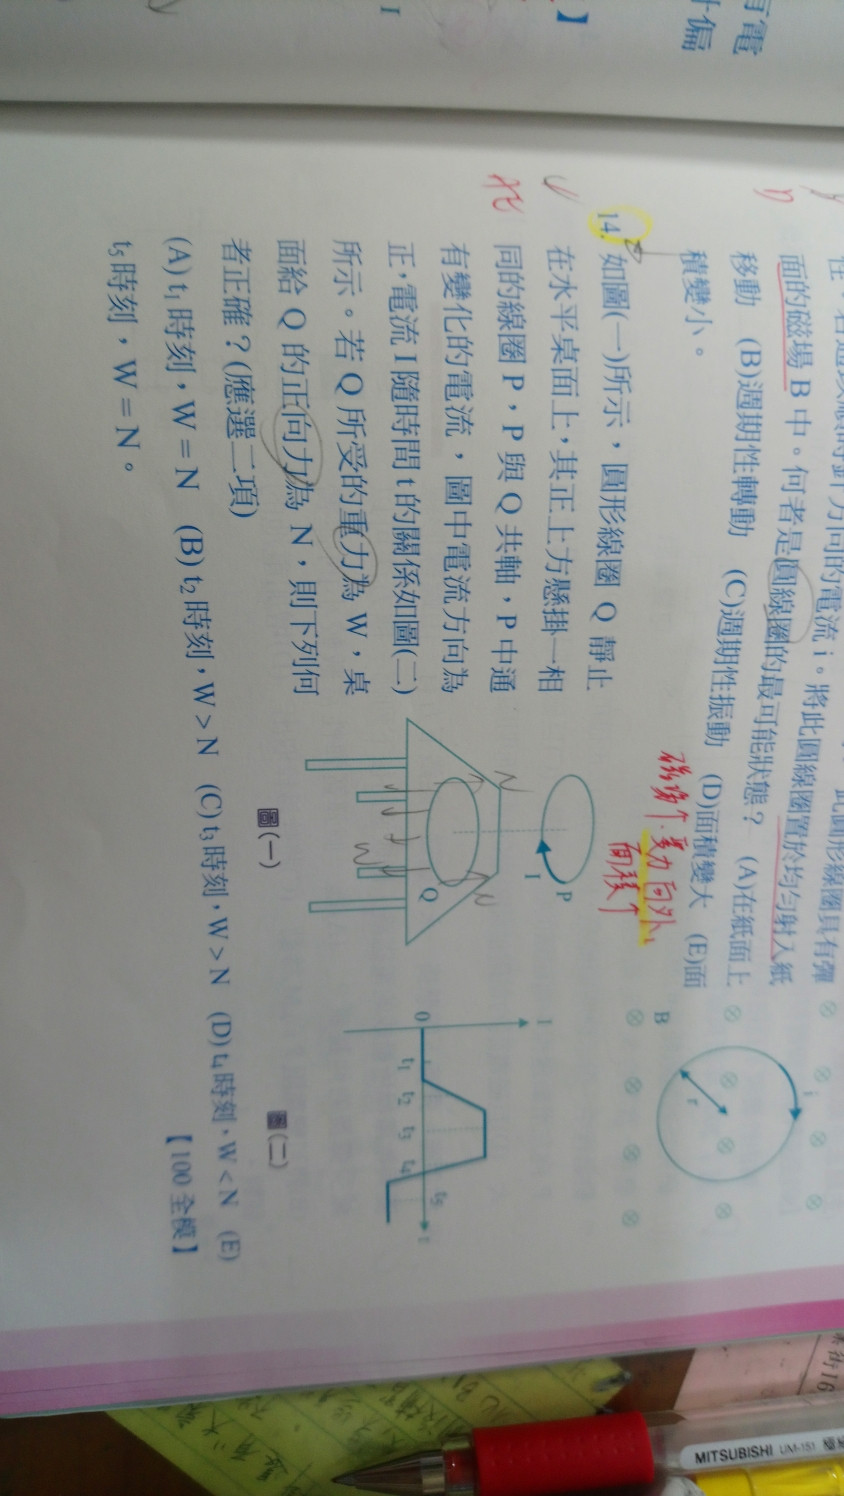 有電
偏
】
I
性。若通以順時針方向的電流 i。將此圓線圈置於均勻射入紙
面的磁場 B 中。何者是圓線圈的最可能狀態? (A)在紙面上
移動 (B)週期性轉動 (C)週期性振動 (D)面積變大 (E)面
積變小。
磁場個、受力向外
面積个
i
r
B
14. 如圖(一)所示,圓形線圈 Q 靜止
在水平桌面上,其正上方懸掛一相
同的線圈 P,P 與 Q 共軸,P 中通
有變化的電流,圖中電流方向為
正,電流 I 隨時間 t 的關係如圖(二)
所示。若 Q 所受的重力為 W,桌
面給 Q 的正向力為 N,則下列何
者正確?(應選二項)
P
I
Q
N
N
W
圖(一)
I
0
t1 t2 t3 t4 t5
t
圖(二)
(A) t1 時刻,W = N (B) t2 時刻,W > N (C) t3 時刻,W > N (D) t4 時刻,W < N (E)
t5 時刻,W = N。
【100 全模】
街16
MITSUBISHI UM-151